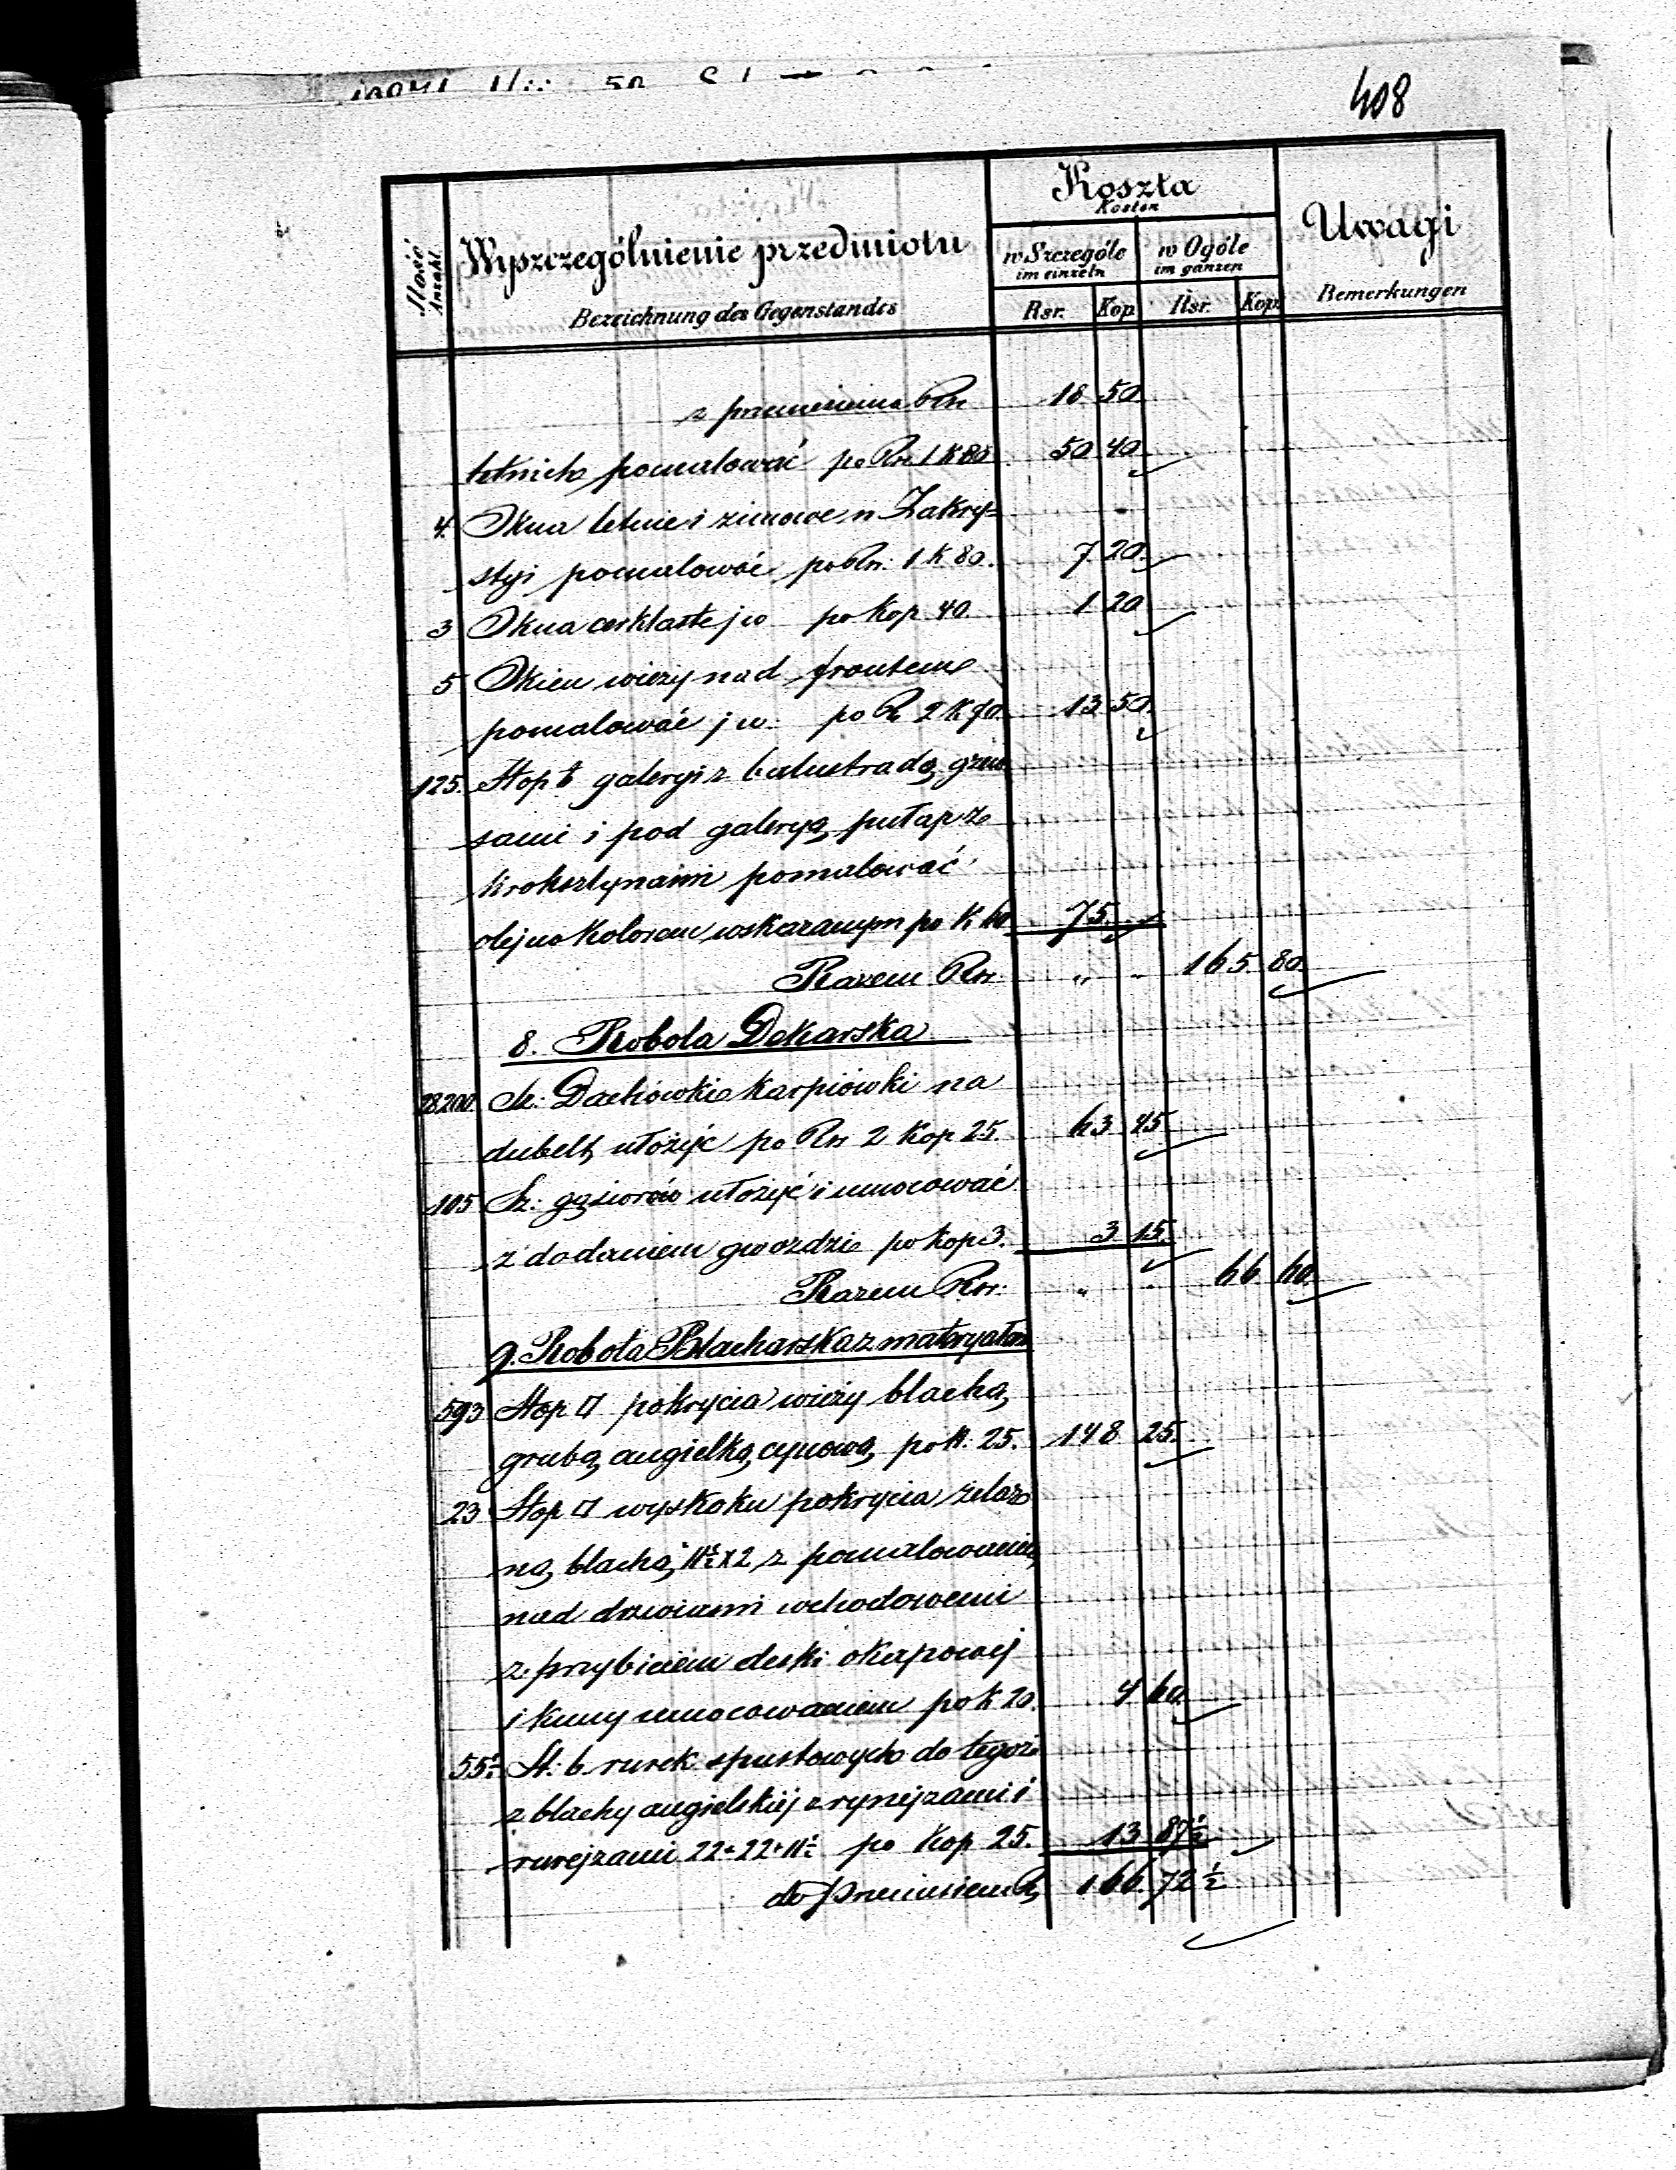 408
Ilość Anzahl.
Wyszczególnienie przedmiotu
Bezeichnung des Gegenstandes
Koszta
Kosten
w Szczególe im einzeln
w Ogóle im ganzen
Rsr. Kop. Rsr. Kop.
Uwagi
Bemerkungen
z przeniesienia Rsr 18 50
letnich pomalować po Rsr. 1 K 80 50 40
4. Okna letnie i zimowe w Zakry=
styi pomalować po Rsr. 1 K 80. 7 20
3 Okna jw po Kop 40. 1 20
5 Okien wieży nad frontem
pomalować j w. po R 2 K 70. 13 50
125. Stop galeryi z balustradą gzem
sami i pod galeryą pułap z
kroksztynami pomalować
olejno kolorem wskazanym po K 60 75
Razem Rsr. " " 165. 80
8. Robota Dekarska
28200 Sz: Dachówki karpiówki na
dubelt ułożyć po Rsr 2 Kop 25. 63 45
105 Sz: gąsiorów ułożyć i umocować
z dodaniem gwoździ po kop 3. 3 15
Razem Rsr. " " 66 60
9. Robota Blacharska z materyałem
593 Stop □ pokrycia wieży blachą
grubą angielką cynową po K. 25. 148 25
23 Stop □ wyskoku pokrycia żelaz
ną blachą 11½ x 2 z pomalowaniem
nad drzwiami wchodowemi
z przybiciem deski okapowej
i umocowaniem po K 20. 4 60
55½ St: b. rurek spustowych do tegoż
z blachy angielskiej z rynejzami i
rurejzami 22+22+11½ po Kop 25. 13 87½
do przeniesienia R 166. 72½